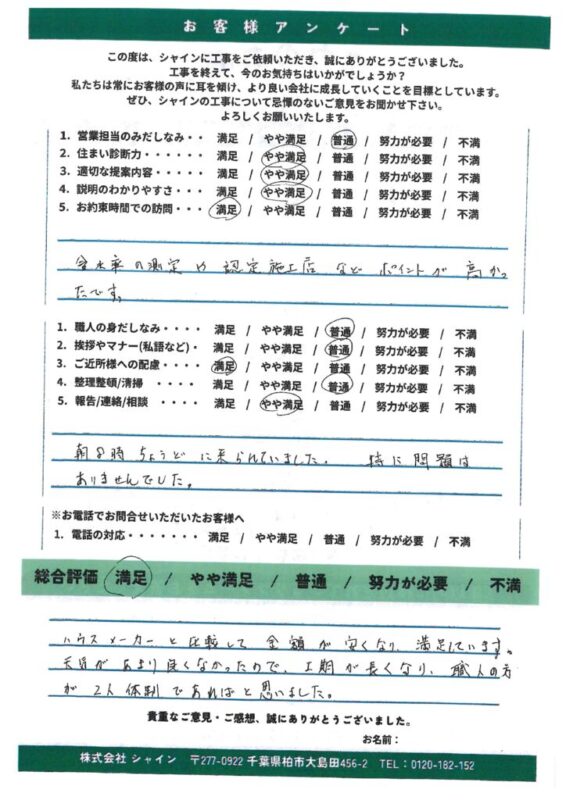 お客様アンケート
この度は、シャインに工事をご依頼いただき、誠にありがとうございました。
工事を終えて、今のお気持ちはいかがでしょうか？
私たちは常にお客様の声に耳を傾け、より良い会社に成長していくことを目標としています。
ぜひ、シャインの工事について忌憚のないご意見をお聞かせ下さい。
よろしくお願いいたします。
1. 営業担当のみだしなみ・・ 満足 / やや満足 / 普通 / 努力が必要 / 不満
2. 住まい診断力・・・・・ 満足 / やや満足 / 普通 / 努力が必要 / 不満
3. 適切な提案内容・・・・ 満足 / やや満足 / 普通 / 努力が必要 / 不満
4. 説明のわかりやすさ・・ 満足 / やや満足 / 普通 / 努力が必要 / 不満
5. お約束時間での訪問・・・ 満足 / やや満足 / 普通 / 努力が必要 / 不満
含水率の測定や認定施工店などポイントが高かっ
たです。
1. 職人の身だしなみ・・・・ 満足 / やや満足 / 普通 / 努力が必要 / 不満
2. 挨拶やマナー(私語など)・ 満足 / やや満足 / 普通 / 努力が必要 / 不満
3. ご近所様への配慮・・・・ 満足 / やや満足 / 普通 / 努力が必要 / 不満
4. 整理整頓/清掃 ・・・・ 満足 / やや満足 / 普通 / 努力が必要 / 不満
5. 報告/連絡/相談 ・・・・ 満足 / やや満足 / 普通 / 努力が必要 / 不満
朝8時ちょうどに来られていました。 特に問題は
ありませんでした。
※お電話でお問合せいただいたお客様へ
1. 電話の対応・・・・・・・ 満足 / やや満足 / 普通 / 努力が必要 / 不満
総合評価 満足 / やや満足 / 普通 / 努力が必要 / 不満
ハウスメーカーと比較して金額が安くなり、満足しています。
天気があまり良くなかったので、工期が長くなり、職人の方
が2人体制であればと思いました。
貴重なご意見・ご感想、誠にありがとうございました。
お名前：
株式会社 シャイン 〒277-0922 千葉県柏市大島田456-2 TEL：0120-182-152